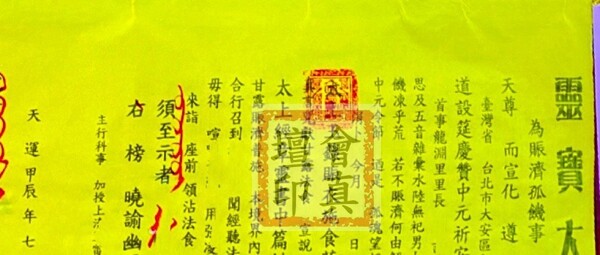 靈寶大
為賑濟孤饑事
天尊 而宣化 遵
臺灣省 台北市大安區
道設筵慶贊中元祈安
首事龍淵里里長
思及五音雜彙水陸無祀男
饑凍乎荒 若不賑濟何由
中元令節 適是 孤魂望
今月 日
賑衣施食
甘露 宣說
太上經 靈書中篇
甘露賑濟普施 本境界內
合行召到 聞經聽法
毋得 喧 用
來詣 座前 領沾法食
須至示者
右榜 曉諭幽
主行科事 加授上
天運甲辰年七
會真壇印